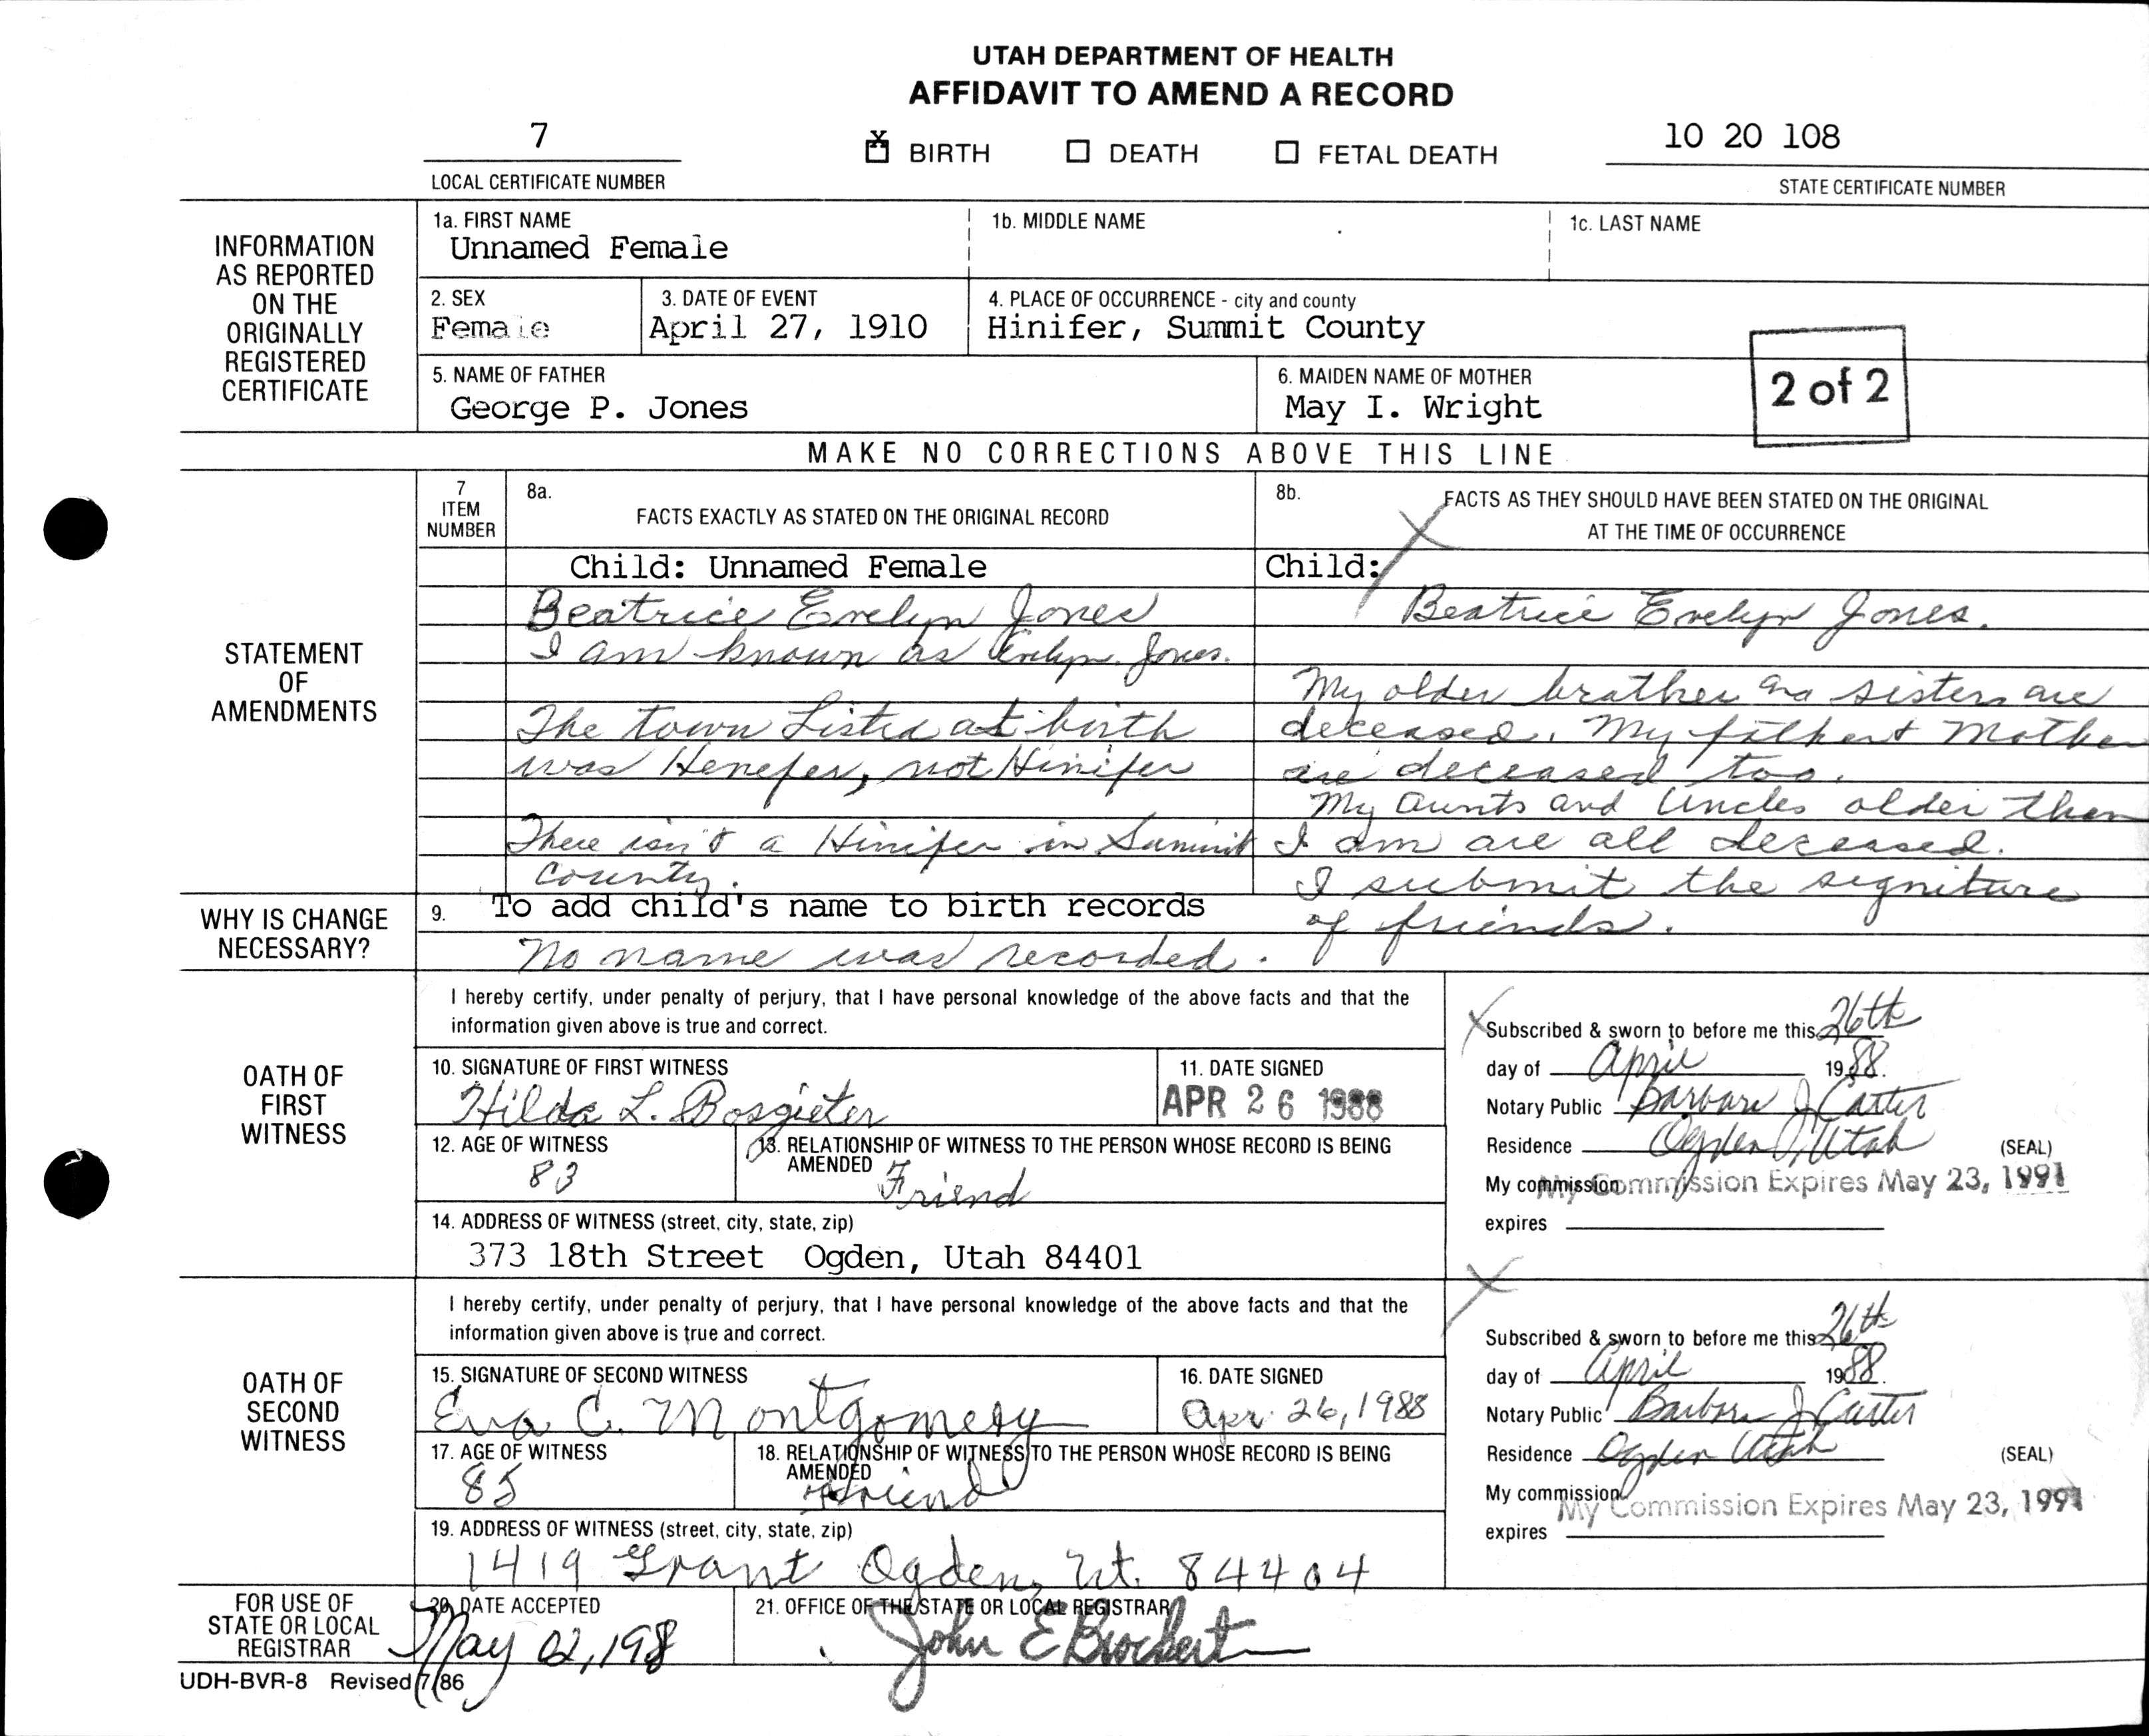 UTAH DEPARTMENT OF HEALTH
AFFIDAVIT TO AMEND A RECORD
7
LOCAL CERTIFICATE NUMBER
X BIRTH DEATH FETAL DEATH
10 20 108
STATE CERTIFICATE NUMBER
INFORMATION
AS REPORTED
ON THE
ORIGINALLY
REGISTERED
CERTIFICATE
1a. FIRST NAME
Unnamed Female
1b. MIDDLE NAME
1c. LAST NAME
2. SEX
Female
3. DATE OF EVENT
April 27, 1910
4. PLACE OF OCCURRENCE - city and county
Hinifer, Summit County
5. NAME OF FATHER
George P. Jones
6. MAIDEN NAME OF MOTHER
May I. Wright
2 of 2
MAKE NO CORRECTIONS ABOVE THIS LINE
STATEMENT
OF
AMENDMENTS
7
ITEM
NUMBER
8a.
FACTS EXACTLY AS STATED ON THE ORIGINAL RECORD
Child: Unnamed Female
Beatrice Evelyn Jones
I am known as Evelyn Jones.
The town Listed at birth
was Henefer, not Hinifer
There isn't a Hinifer in Summit
County.
8b.
FACTS AS THEY SHOULD HAVE BEEN STATED ON THE ORIGINAL
AT THE TIME OF OCCURRENCE
Child:
Beatrice Evelyn Jones.
My older brother and sisters are
deceased. My father & Mother
are deceased too.
My Aunts and Uncles older than
I am are all deceased.
I submit the signiture
of friends.
WHY IS CHANGE
NECESSARY?
9. To add child's name to birth records
No name was recorded.
OATH OF
FIRST
WITNESS
I hereby certify, under penalty of perjury, that I have personal knowledge of the above facts and that the
information given above is true and correct.
10. SIGNATURE OF FIRST WITNESS
Hilda L. Bosgieter
11. DATE SIGNED
APR 26 1988
12. AGE OF WITNESS
83
13. RELATIONSHIP OF WITNESS TO THE PERSON WHOSE RECORD IS BEING
AMENDED Friend
14. ADDRESS OF WITNESS (street, city, state, zip)
373 18th Street Ogden, Utah 84401
Subscribed & sworn to before me this 26th
day of April 1988.
Notary Public Barbara J Carter
Residence Ogden, Utah (SEAL)
My commission My Commission Expires May 23, 1991
expires
OATH OF
SECOND
WITNESS
I hereby certify, under penalty of perjury, that I have personal knowledge of the above facts and that the
information given above is true and correct.
15. SIGNATURE OF SECOND WITNESS
Eva C. Montgomery
16. DATE SIGNED
Apr. 26, 1988
17. AGE OF WITNESS
85
18. RELATIONSHIP OF WITNESS TO THE PERSON WHOSE RECORD IS BEING
AMENDED
Friend
19. ADDRESS OF WITNESS (street, city, state, zip)
1419 Grant Ogden, Ut. 84404
Subscribed & sworn to before me this 26th
day of April 1988.
Notary Public Barbara J Carter
Residence Ogden Utah (SEAL)
My commission My Commission Expires May 23, 1991
expires
FOR USE OF
STATE OR LOCAL
REGISTRAR
20. DATE ACCEPTED
May 02, 198
21. OFFICE OF THE STATE OR LOCAL REGISTRAR
John E Brockert
UDH-BVR-8 Revised 7/86